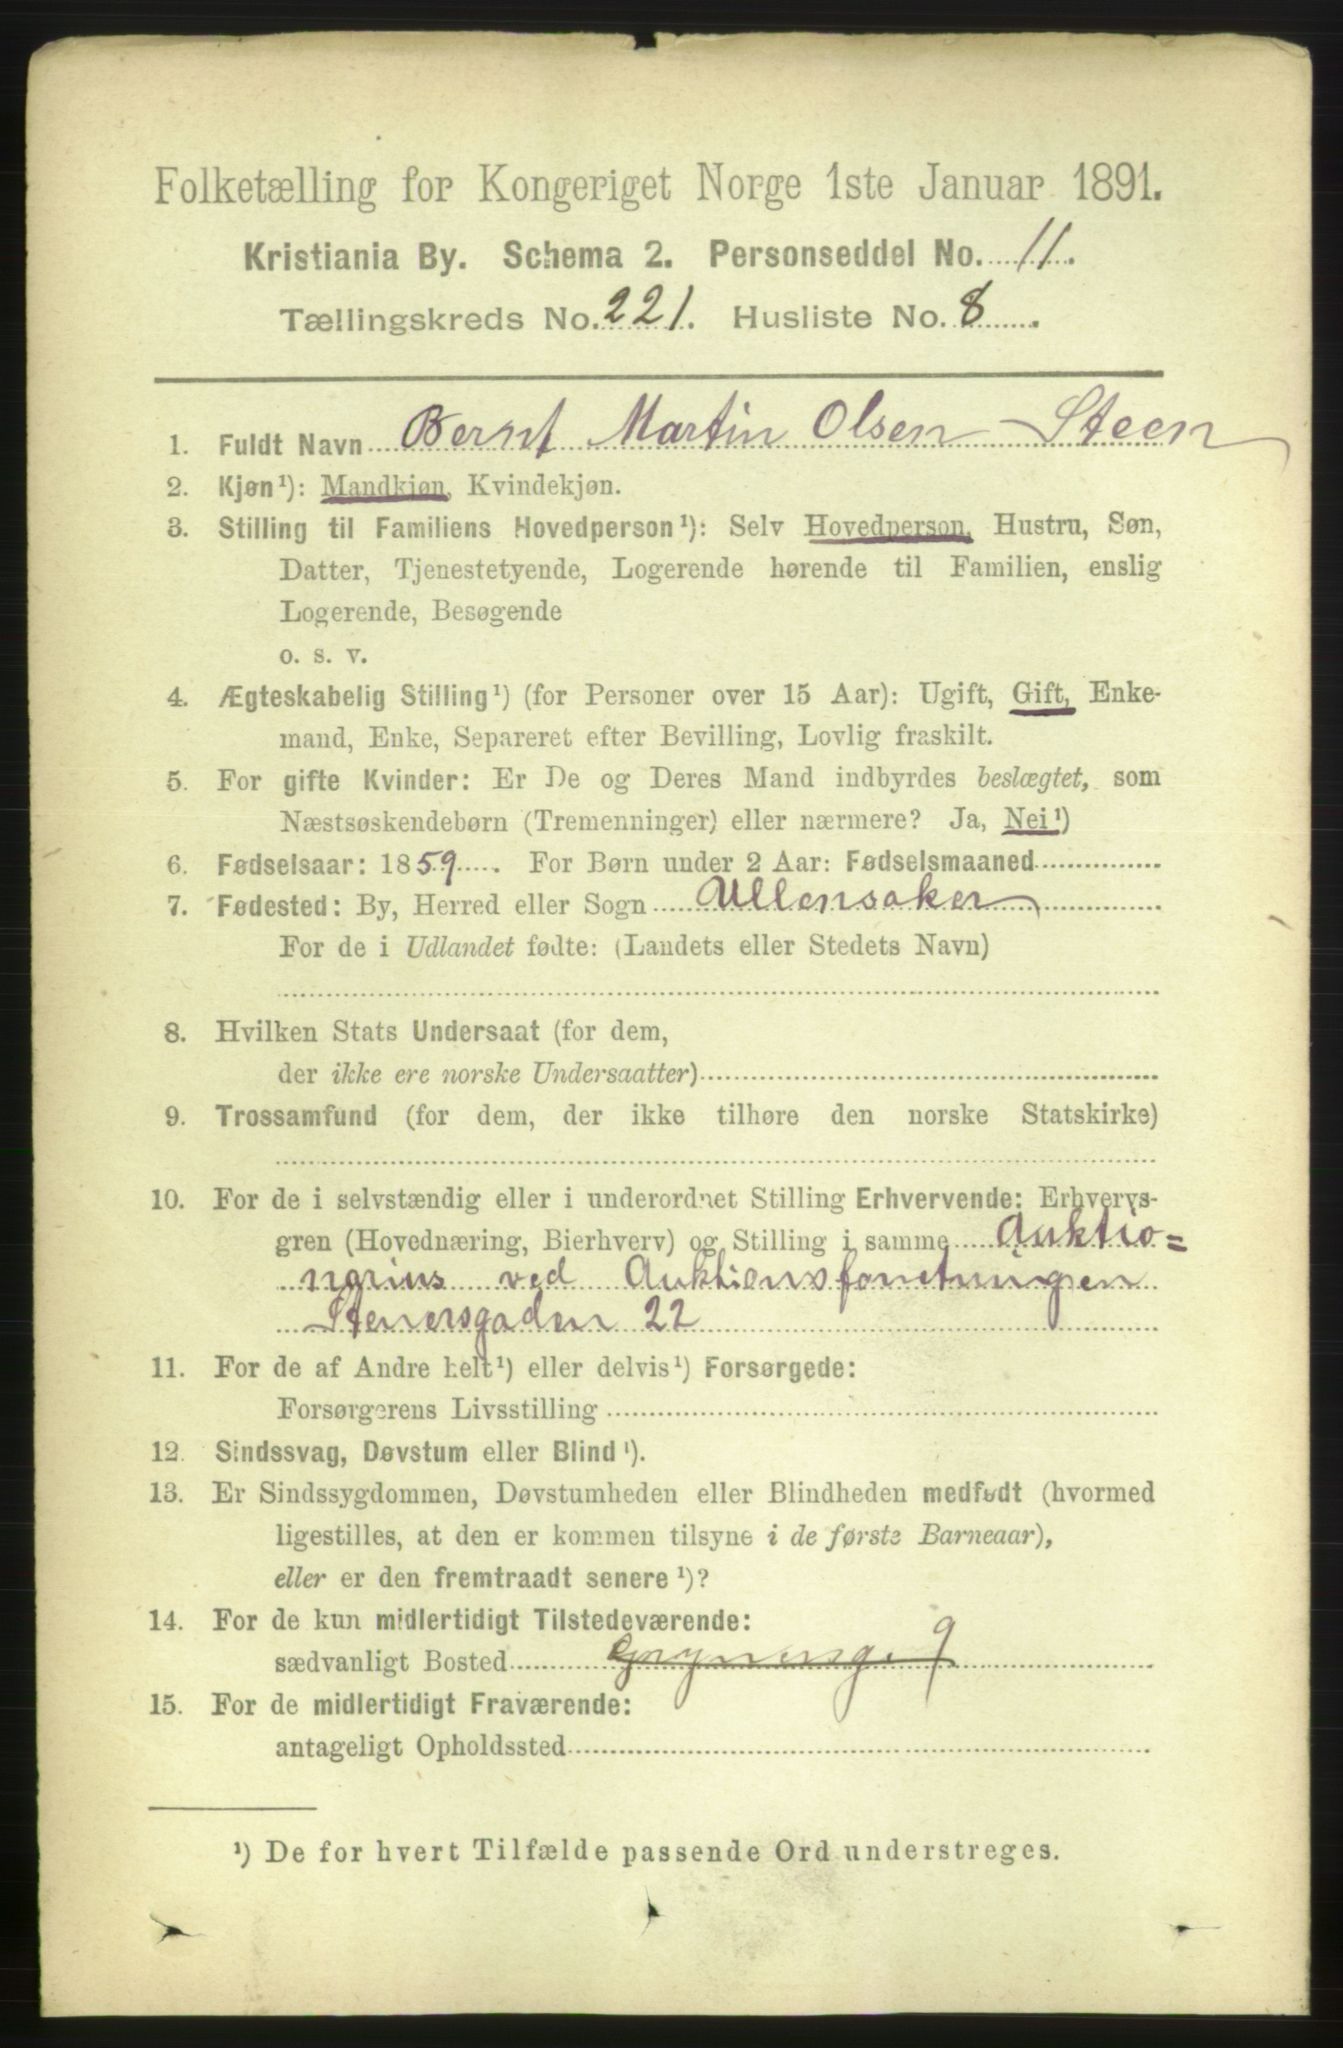 Folketælling for Kongeriget Norge 1ste Januar 1891.
Kristiania By. Schema 2. Personseddel No. 11.
Tællingskreds No. 221. Husliste No. 8.
1. Fuldt Navn Bernt Martin Olsen Steen
2. Kjøn¹): Mandkjøn, Kvindekjøn.
3. Stilling til Familiens Hovedperson¹): Selv Hovedperson, Hustru, Søn,
Datter, Tjenestetyende, Logerende hørende til Familien, enslig
Logerende, Besøgende
o. s. v.
4. Ægteskabelig Stilling¹) (for Personer over 15 Aar): Ugift, Gift, Enke-
mand, Enke, Separeret efter Bevilling, Lovlig fraskilt.
5. For gifte Kvinder: Er De og Deres Mand indbyrdes beslægtet, som
Næstsøskendebørn (Tremenninger) eller nærmere? Ja, Nei¹)
6. Fødselsaar: 1859. For Børn under 2 Aar: Fødselsmaaned
7. Fødested: By, Herred eller Sogn Ullensaker
For de i Udlandet fødte: (Landets eller Stedets Navn)
8. Hvilken Stats Undersaat (for dem,
der ikke ere norske Undersaatter)
9. Trossamfund (for dem, der ikke tilhøre den norske Statskirke)
10. For de i selvstændig eller i underordnet Stilling Erhvervende: Erhvervs-
gren (Hovednæring, Bierhverv) og Stilling i samme Auktio=
narius ved Auktionsforretningen
Stenersgaden 22
11. For de af Andre helt¹) eller delvis¹) Forsørgede:
Forsørgerens Livsstilling
12. Sindssvag, Døvstum eller Blind¹).
13. Er Sindssygdommen, Døvstumheden eller Blindheden medfødt (hvormed
ligestilles, at den er kommen tilsyne i de første Barneaar),
eller er den fremtraadt senere¹)?
14. For de kun midlertidigt Tilstedeværende:
sædvanligt Bosted 9
15. For de midlertidigt Fraværende:
antageligt Opholdssted
¹) De for hvert Tilfælde passende Ord understreges.